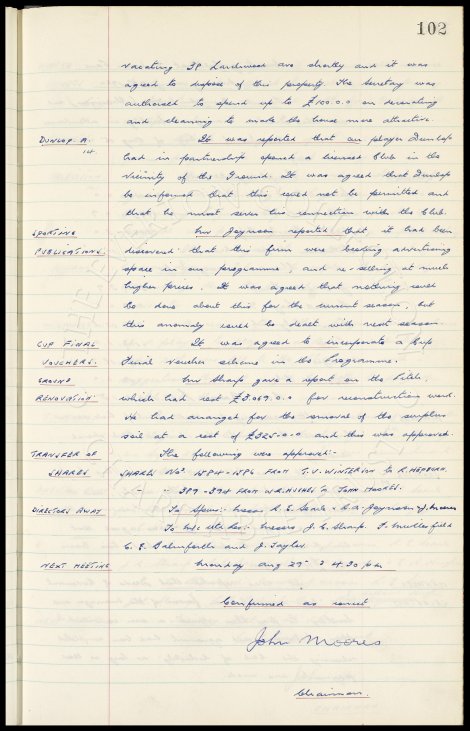 102
vacating 38 Larchwood ave shortly and it was
agreed to dispose of this property. The Secretary was
authorised to spend up to £100.0.0 on decorating
and cleaning to make the house more attractive.
DUNLOP. A. It was reported that our player Dunlop
had in partnership opened a licensed Club in the
vicinity of the Ground. It was agreed that Dunlop
be informed that this could not be permitted and
that he must sever his connection with the Club.
SPORTING Mr Joynson reported that it had been
PUBLICATIONS. discovered that this firm were booking advertising
space in our programme, and re-selling at much
higher prices. It was agreed that nothing could
be done about this for the current season, but
this anomaly could be dealt with next season.
CUP FINAL It was agreed to incorporate a Cup
VOUCHERS. Final Voucher scheme in the Programme.
GROUND Mr Sharp gave a report on the Pitch,
RENOVATION which had cost £3069.0.0 for reconstruction work.
He had arranged for the removal of the surplus
soil at a cost of £325-0-0 and this was approved.
TRANSFER OF The following were approved:-
SHARES SHARES Nos. 1584-1586 FROM T. V. WINTERTON to R. HEPBURN.
" " 389-394 FROM W.R. HUGHES to JOHN MOORES.
DIRECTORS AWAY To Spurs:- Messrs R. E. Searle - C.A. Joynson & J. Moores
To :- Messrs J. C. Sharp. F. Micklesfield
C. E. Balmforth and J. Taylor.
NEXT MEETING Monday Aug 29th. @ 4.30 pm
Confirmed as correct
John Moores
Chairman.